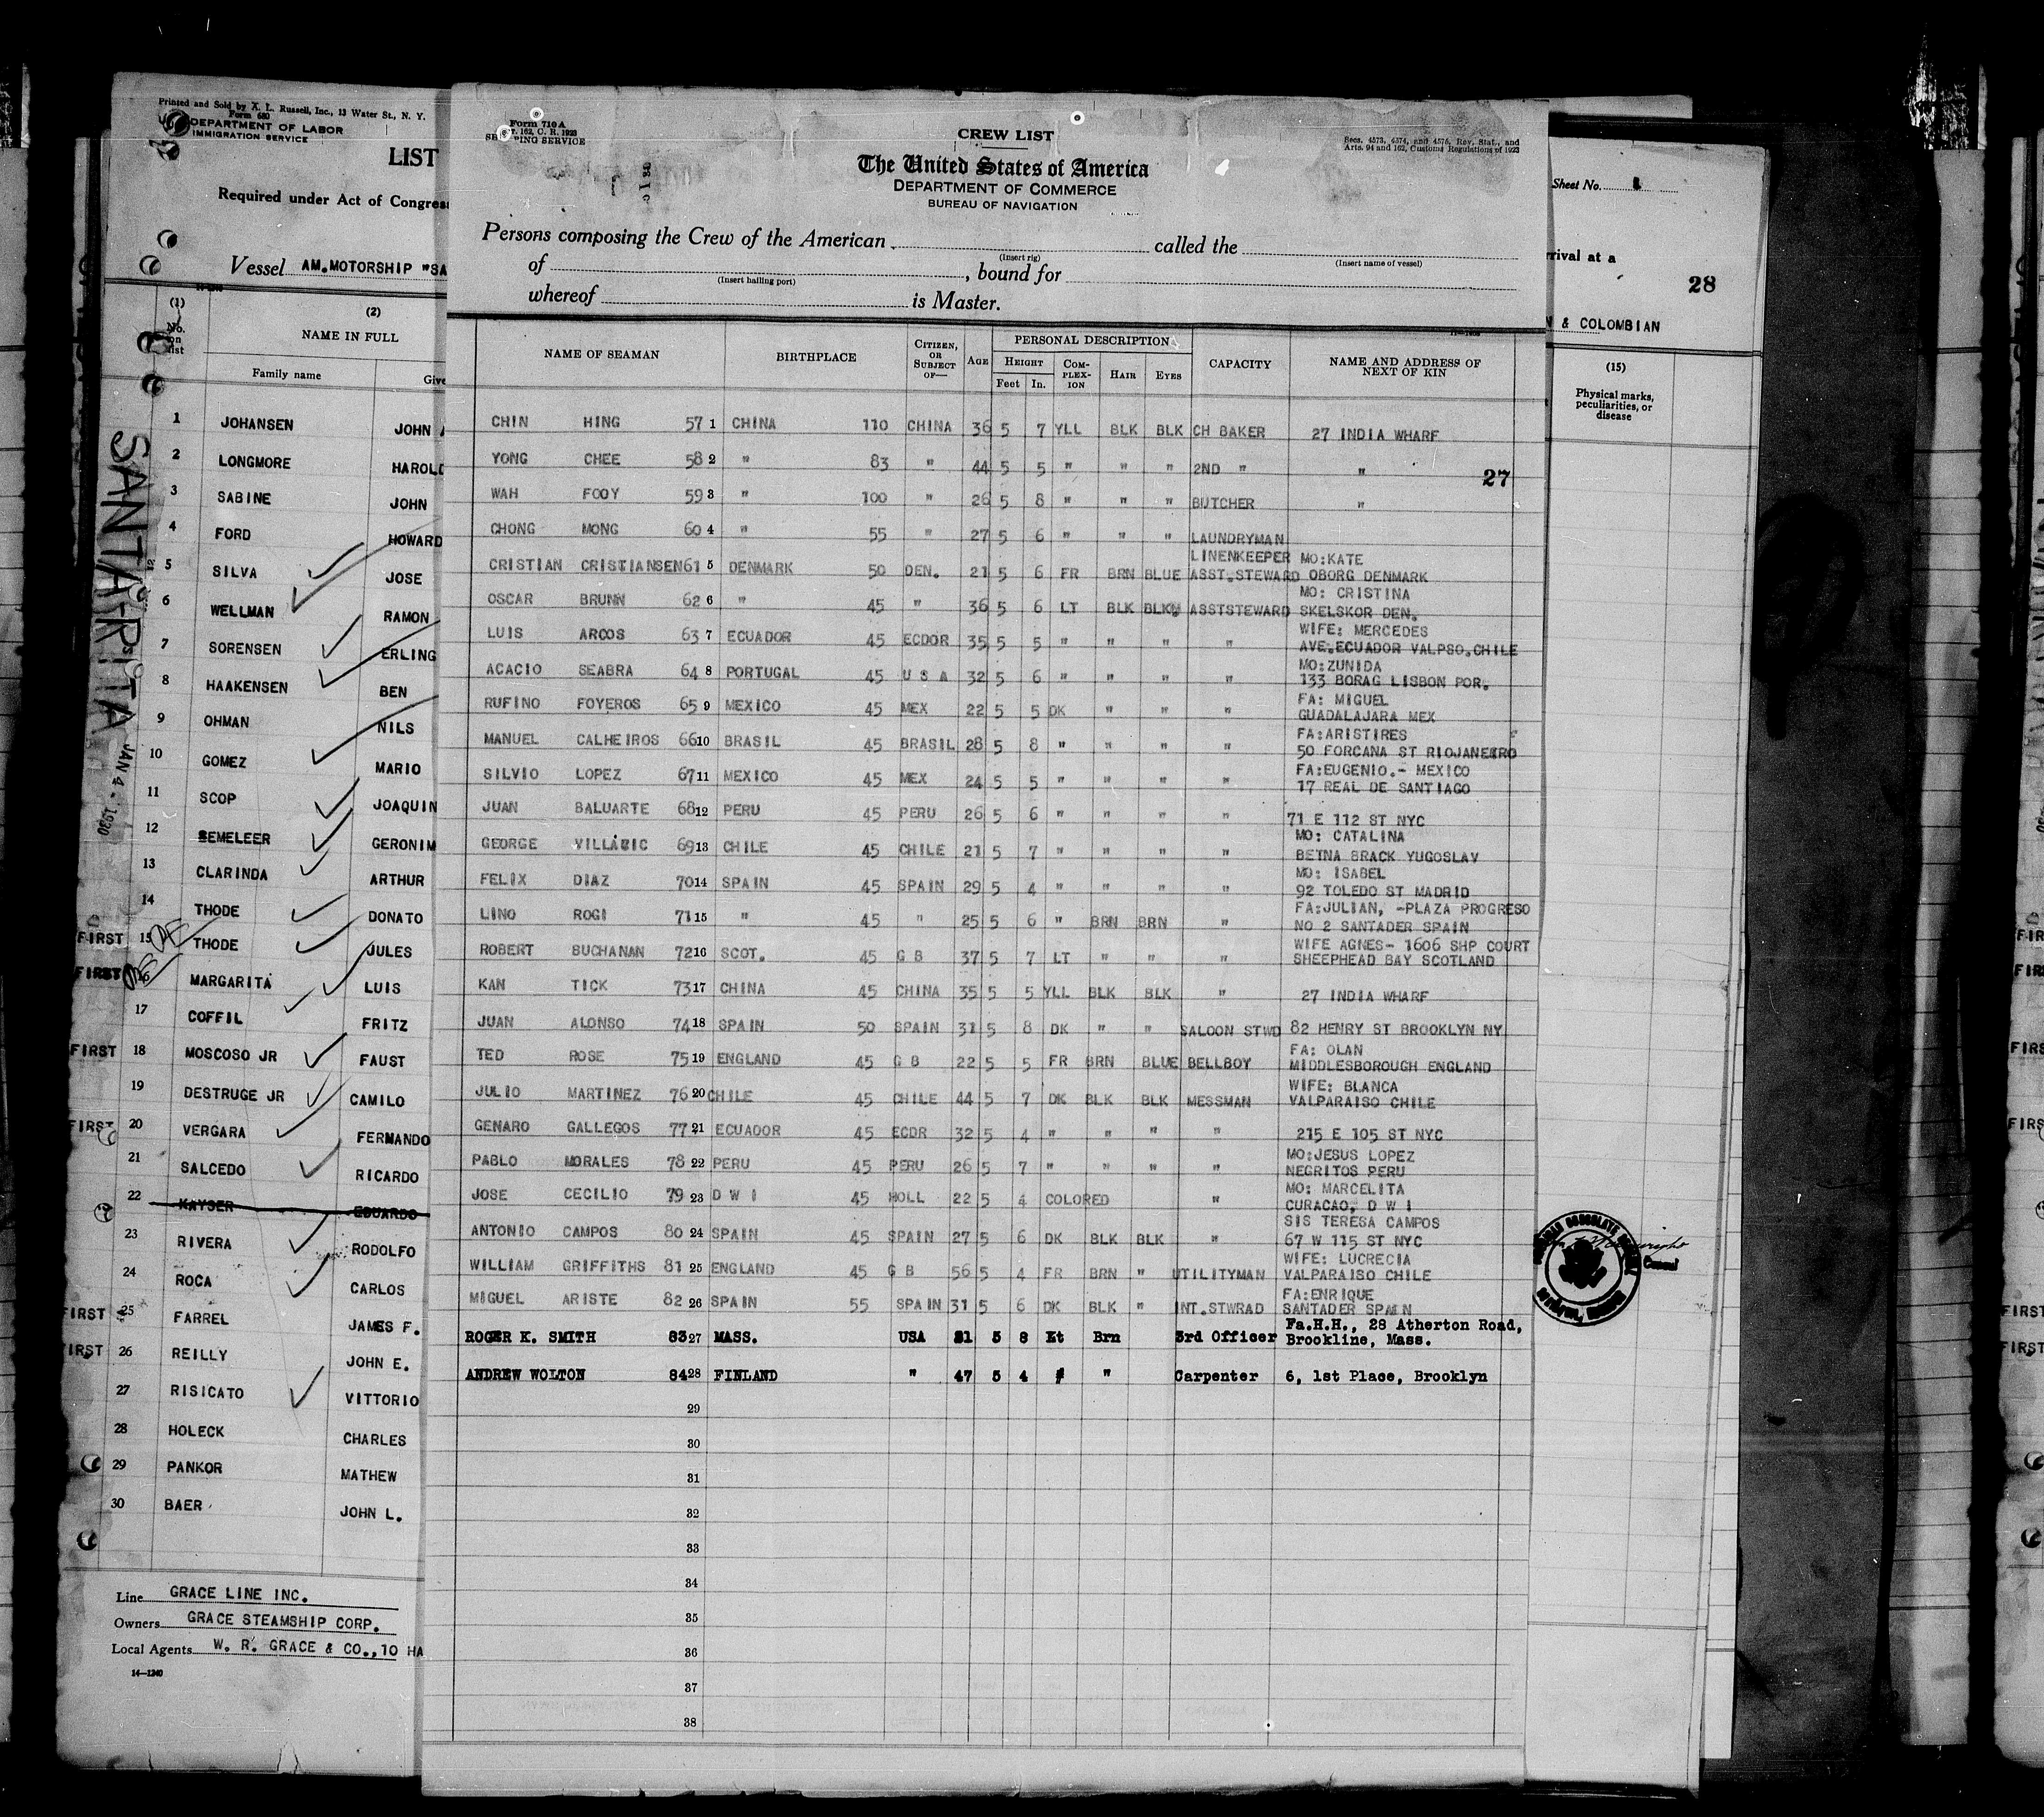 Printed and Sold by X. L. Russell, Inc., 13 Water St., N. Y.
Form 680
DEPARTMENT OF LABOR
IMMIGRATION SERVICE
LIST
Required under Act of Congres
Vessel AM.MOTORSHIP "SA
(1) (2)
No. on list
NAME IN FULL
Family name Give
1 JOHANSEN JOHN
2 LONGMORE HAROLD
3 SABINE JOHN
4 FORD HOWARD
5 SILVA JOSE
6 WELLMAN RAMON
7 SORENSEN ERLING
8 HAAKENSEN BEN
9 OHMAN NILS
10 GOMEZ MARIO
11 SCOP JOAQUIN
12 SEMELEER GERONIM
13 CLARINDA ARTHUR
14 THODE DONATO
FIRST 15 THODE JULES
FIRST 16 MARGARITA LUIS
17 COFFIL FRITZ
FIRST 18 MOSCOSO JR FAUST
19 DESTRUGE JR CAMILO
FIRST 20 VERGARA FERNANDO
21 SALCEDO RICARDO
22 KAYSER EDUARDO
23 RIVERA RODOLFO
24 ROCA CARLOS
FIRST 25 FARREL JAMES F.
FIRST 26 REILLY JOHN E.
27 RISICATO VITTORIO
28 HOLECK CHARLES
29 PANKOR MATHEW
30 BAER JOHN L.
Line GRACE LINE INC.
Owners GRACE STEAMSHIP CORP.
Local Agents W. R. GRACE & CO., 10 HA
14—1240
SANTA-RITA
JAN 4 - 1930
Form 710 A
162, C. R. 1923
CREW LIST
Secs. 4573, 4574, and 4575, Rev. Stat., and
Arts. 94 and 162, Customs Regulations of 1923
The United States of America
DEPARTMENT OF COMMERCE
BUREAU OF NAVIGATION
Persons composing the Crew of the American called the
(Insert rig) (Insert name of vessel)
of , bound for
(Insert hailing port)
whereof is Master.
NAME OF SEAMAN BIRTHPLACE CITIZEN, OR SUBJECT OF— AGE PERSONAL DESCRIPTION CAPACITY NAME AND ADDRESS OF NEXT OF KIN
HEIGHT COMPLEXION HAIR EYES
Feet In.
CHIN HING 57 1 CHINA 110 CHINA 36 5 7 YLL BLK BLK CH BAKER 27 INDIA WHARF
YONG CHEE 58 2 " 83 " 44 5 5 " " " 2ND " "
27
WAH FOOY 59 3 " 100 " 26 5 8 " " " BUTCHER "
CHONG MONG 60 4 " 55 " 27 5 6 " " " LAUNDRYMAN
LINENKEEPER MO:KATE
CRISTIAN CRISTIANSEN 61 5 DENMARK 50 DEN. 21 5 6 FR BRN BLUE ASST.STEWARD OBORG DENMARK
MO: CRISTINA
OSCAR BRUNN 62 6 " 45 " 36 5 6 LT BLK BLK ASSTSTEWARD SKELSKOR DEN.
WIFE: MERCEDES
LUIS ARCOS 63 7 ECUADOR 45 ECDOR 35 5 5 " " " " AVE.ECUADOR VALPSO.CHILE
MO:ZUNIDA
ACACIO SEABRA 64 8 PORTUGAL 45 U S A 32 5 6 " " " " 133 BORAG LISBON POR.
FA: MIGUEL
RUFINO FOYEROS 65 9 MEXICO 45 MEX 22 5 5 DK " " " GUADALAJARA MEX
FA:ARISTIRES
MANUEL CALHEIROS 66 10 BRASIL 45 BRASIL 28 5 8 " " " " 50 FORCANA ST RIOJANEIRO
FA:EUGENIO.- MEXICO
SILVIO LOPEZ 67 11 MEXICO 45 MEX 24 5 5 " " " " 17 REAL DE SANTIAGO
JUAN BALUARTE 68 12 PERU 45 PERU 26 5 6 " " " " 71 E 112 ST NYC
MO: CATALINA
GEORGE VILLASIC 69 13 CHILE 45 CHILE 21 5 7 " " " " BETNA BRACK YUGOSLAV
MO: ISABEL
FELIX DIAZ 70 14 SPAIN 45 SPAIN 29 5 4 " " " " 92 TOLEDO ST MADRID
FA:JULIAN, -PLAZA PROGRESO
LINO ROGI 71 15 " 45 " 25 5 6 " BRN BRN NO 2 SANTADER SPAIN
WIFE AGNES- 1606 SHP COURT
ROBERT BUCHANAN 72 16 SCOT. 45 G B 37 5 7 LT " " " SHEEPHEAD BAY SCOTLAND
KAN TICK 73 17 CHINA 45 CHINA 35 5 5 YLL BLK BLK " 27 INDIA WHARF
JUAN ALONSO 74 18 SPAIN 50 SPAIN 31 5 8 DK " " SALOON STWD 82 HENRY ST BROOKLYN NY
FA: OLAN
TED ROSE 75 19 ENGLAND 45 G B 22 5 5 FR BRN BLUE BELLBOY MIDDLESBOROUGH ENGLAND
WIFE: BLANCA
JULIO MARTINEZ 76 20 CHILE 45 CHILE 44 5 7 DK BLK BLK MESSMAN VALPARAISO CHILE
GENARO GALLEGOS 77 21 ECUADOR 45 ECDR 32 5 4 " " " " 215 E 105 ST NYC
MO:JESUS LOPEZ
PABLO MORALES 78 22 PERU 45 PERU 26 5 7 " " " " NEGRITOS PERU
MO: MARCELITA
JOSE CECILIO 79 23 D W I 45 HOLL 22 5 4 COLORED " CURACAO, D W I
SIS TERESA CAMPOS
ANTONIO CAMPOS 80 24 SPAIN 45 SPAIN 27 5 6 DK BLK BLK " 67 W 115 ST NYC
WIFE: LUCRECIA
WILLIAM GRIFFITHS 81 25 ENGLAND 45 G B 56 5 4 FR BRN " UTILITYMAN VALPARAISO CHILE
FA:ENRIQUE
MIGUEL ARISTE 82 26 SPAIN 55 SPAIN 31 5 6 DK BLK " INT.STWRAD SANTADER SPAIN
Fa.H.H., 28 Atherton Road,
ROGER K. SMITH 83 27 MASS. USA 21 5 8 Lt Brn 3rd Officer Brookline, Mass.
ANDREW WOLTON 84 28 FINLAND " 47 5 4 " " Carpenter 6, 1st Place, Brooklyn
29
30
31
32
33
34
35
36
37
38
Sheet No. 1
rrival at a
28
N & COLOMBIAN
(15)
Physical marks, peculiarities, or disease
Consul